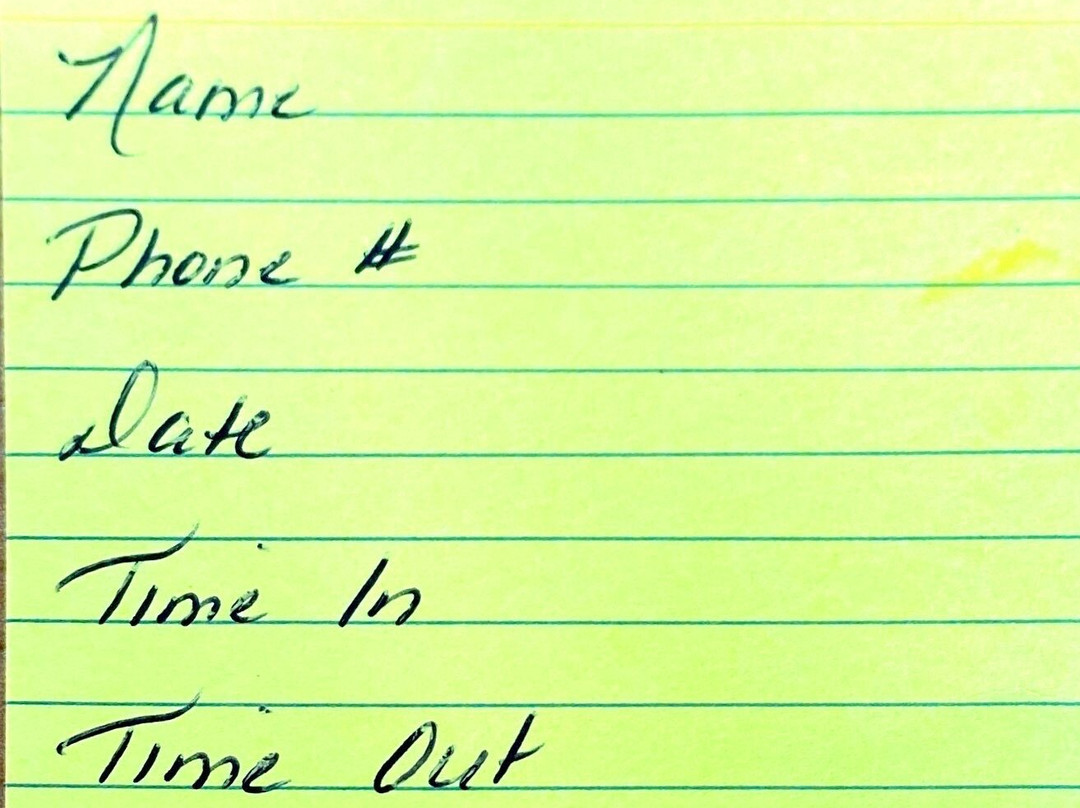 Name
Phone #
Date
Time In
Time Out